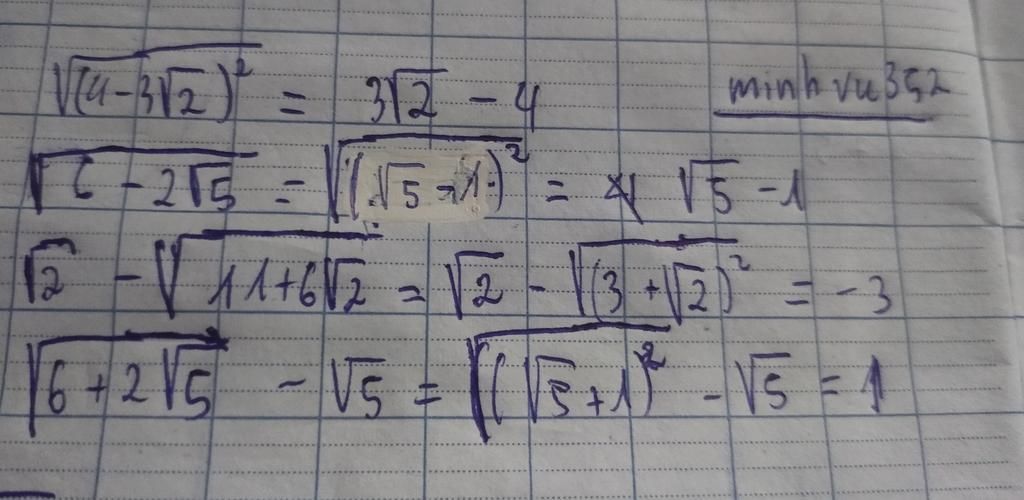 √(4-3√2)² = 3√2 - 4
minhvu352
√6-2√5 = √(√5-1)² = √5-1
√2 - √11+6√2 = √2 - √(3+√2)² = -3
√6+2√5 - √5 = √(√5+1)² - √5 = 1